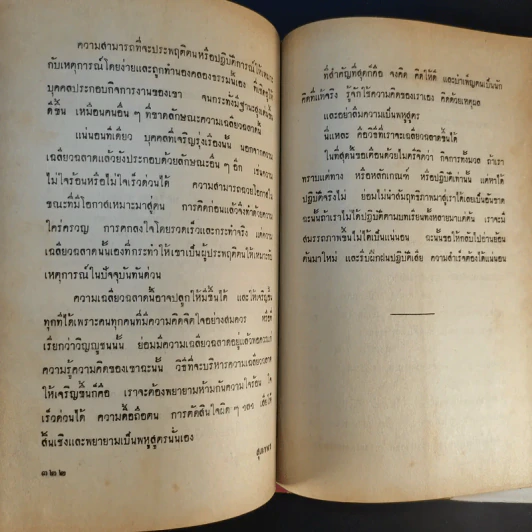 ความสามารถที่จะประพฤติตนหรือปฏิบัติการณ์ให้เหมาะ
กับเหตุการณ์โดยง่ายและถูกทำนองคลองธรรมนี้เอง ที่เชิดชูให้
บุคคลประกอบกิจการงานของเขา จนกระทั่งมีฐานะสูงเด่นขึ้น
ดีขึ้น เหมือนคนอื่น ๆ ที่ขาดลักษณะความเฉลียวฉลาดนี้
แน่นอนทีเดียว บุคคลที่เจริญรุ่งเรืองนั้น นอกจากความ
เฉลียวฉลาดแล้วยังประกอบด้วยลักษณะอื่น ๆ อีก เช่นความ
ไม่ใจร้อนหรือไม่ใจเร็วด่วนได้ ความสามารถฉวยโอกาสใน
ขณะที่มีโอกาสเหมาะมาสู่ตน การคิดก่อนแล้วจึงทำด้วยความ
ใคร่ครวญ การตกลงใจโดยรวดเร็วและกระทำจริง แต่ความ
เฉลียวฉลาดนั้นเองที่กระทำให้เขาเป็นผู้ประพฤติตนให้เหมาะกับ
เหตุการณ์ในปัจจุบันทันด่วน
ความเฉลียวฉลาดนี้อาจปลูกให้มีขึ้นได้ และให้เจริญขึ้น
ทุกทีได้เพราะคนทุกคนที่มีความคิดจิตใจอย่างสมควร หรือที่
เรียกว่าวิญญูชนนั้น ย่อมมีความเฉลียวฉลาดอยู่แล้วพอควรแก่
ความรู้ความคิดของเขาฉะนั้น วิธีที่จะบริหารความเฉลียวฉลาด
ให้เจริญขึ้นก็คือ เราจะต้องพยายามห้ามกันความใจร้อน ใจ
เร็วด่วนได้ ความดื้อถือตน การตัดสินใจผิด ๆ ลง เสียให้
สิ้นเชิงและพยายามเป็นพหูสูตรนั้นเอง
๓๒๒
ที่สำคัญที่สุดก็คือ จงคิด คิดให้ดี และบำเพ็ญตนเป็นนัก
คิดที่แท้จริง รู้จักใช้ความคิดของเราเอง คิดด้วยเหตุผล
และอย่าลืมความเป็นพหูสูตร
นี่แหละ คือวิธีที่เราจะเฉลียวฉลาดขึ้นได้
ในที่สุดนี้ขอเตือนด้วยไมตรีจิตว่า กิจการทั้งมวล ถ้าเรา
ทราบแต่ทาง หรือหลักเกณฑ์ หรือปฏิบัติเท่านั้น แต่หาได้
ปฏิบัติจริงไม่ ย่อมไม่นำสัมฤทธิภาพมาสู่เราได้เลยเป็นอันขาด
ฉะนั้นถ้าเราไม่ได้ปฏิบัติตามบทเรียนทั้งหลายมาแต่ต้น เราจะมี
สมรรถภาพขึ้นไม่ได้เป็นแน่นอน ฉะนั้นขอให้กลับไปอ่านย้อน
ต้นมาใหม่ และรีบฝึกฝนปฏิบัติเสีย ความสำเร็จต้องได้แน่นอน